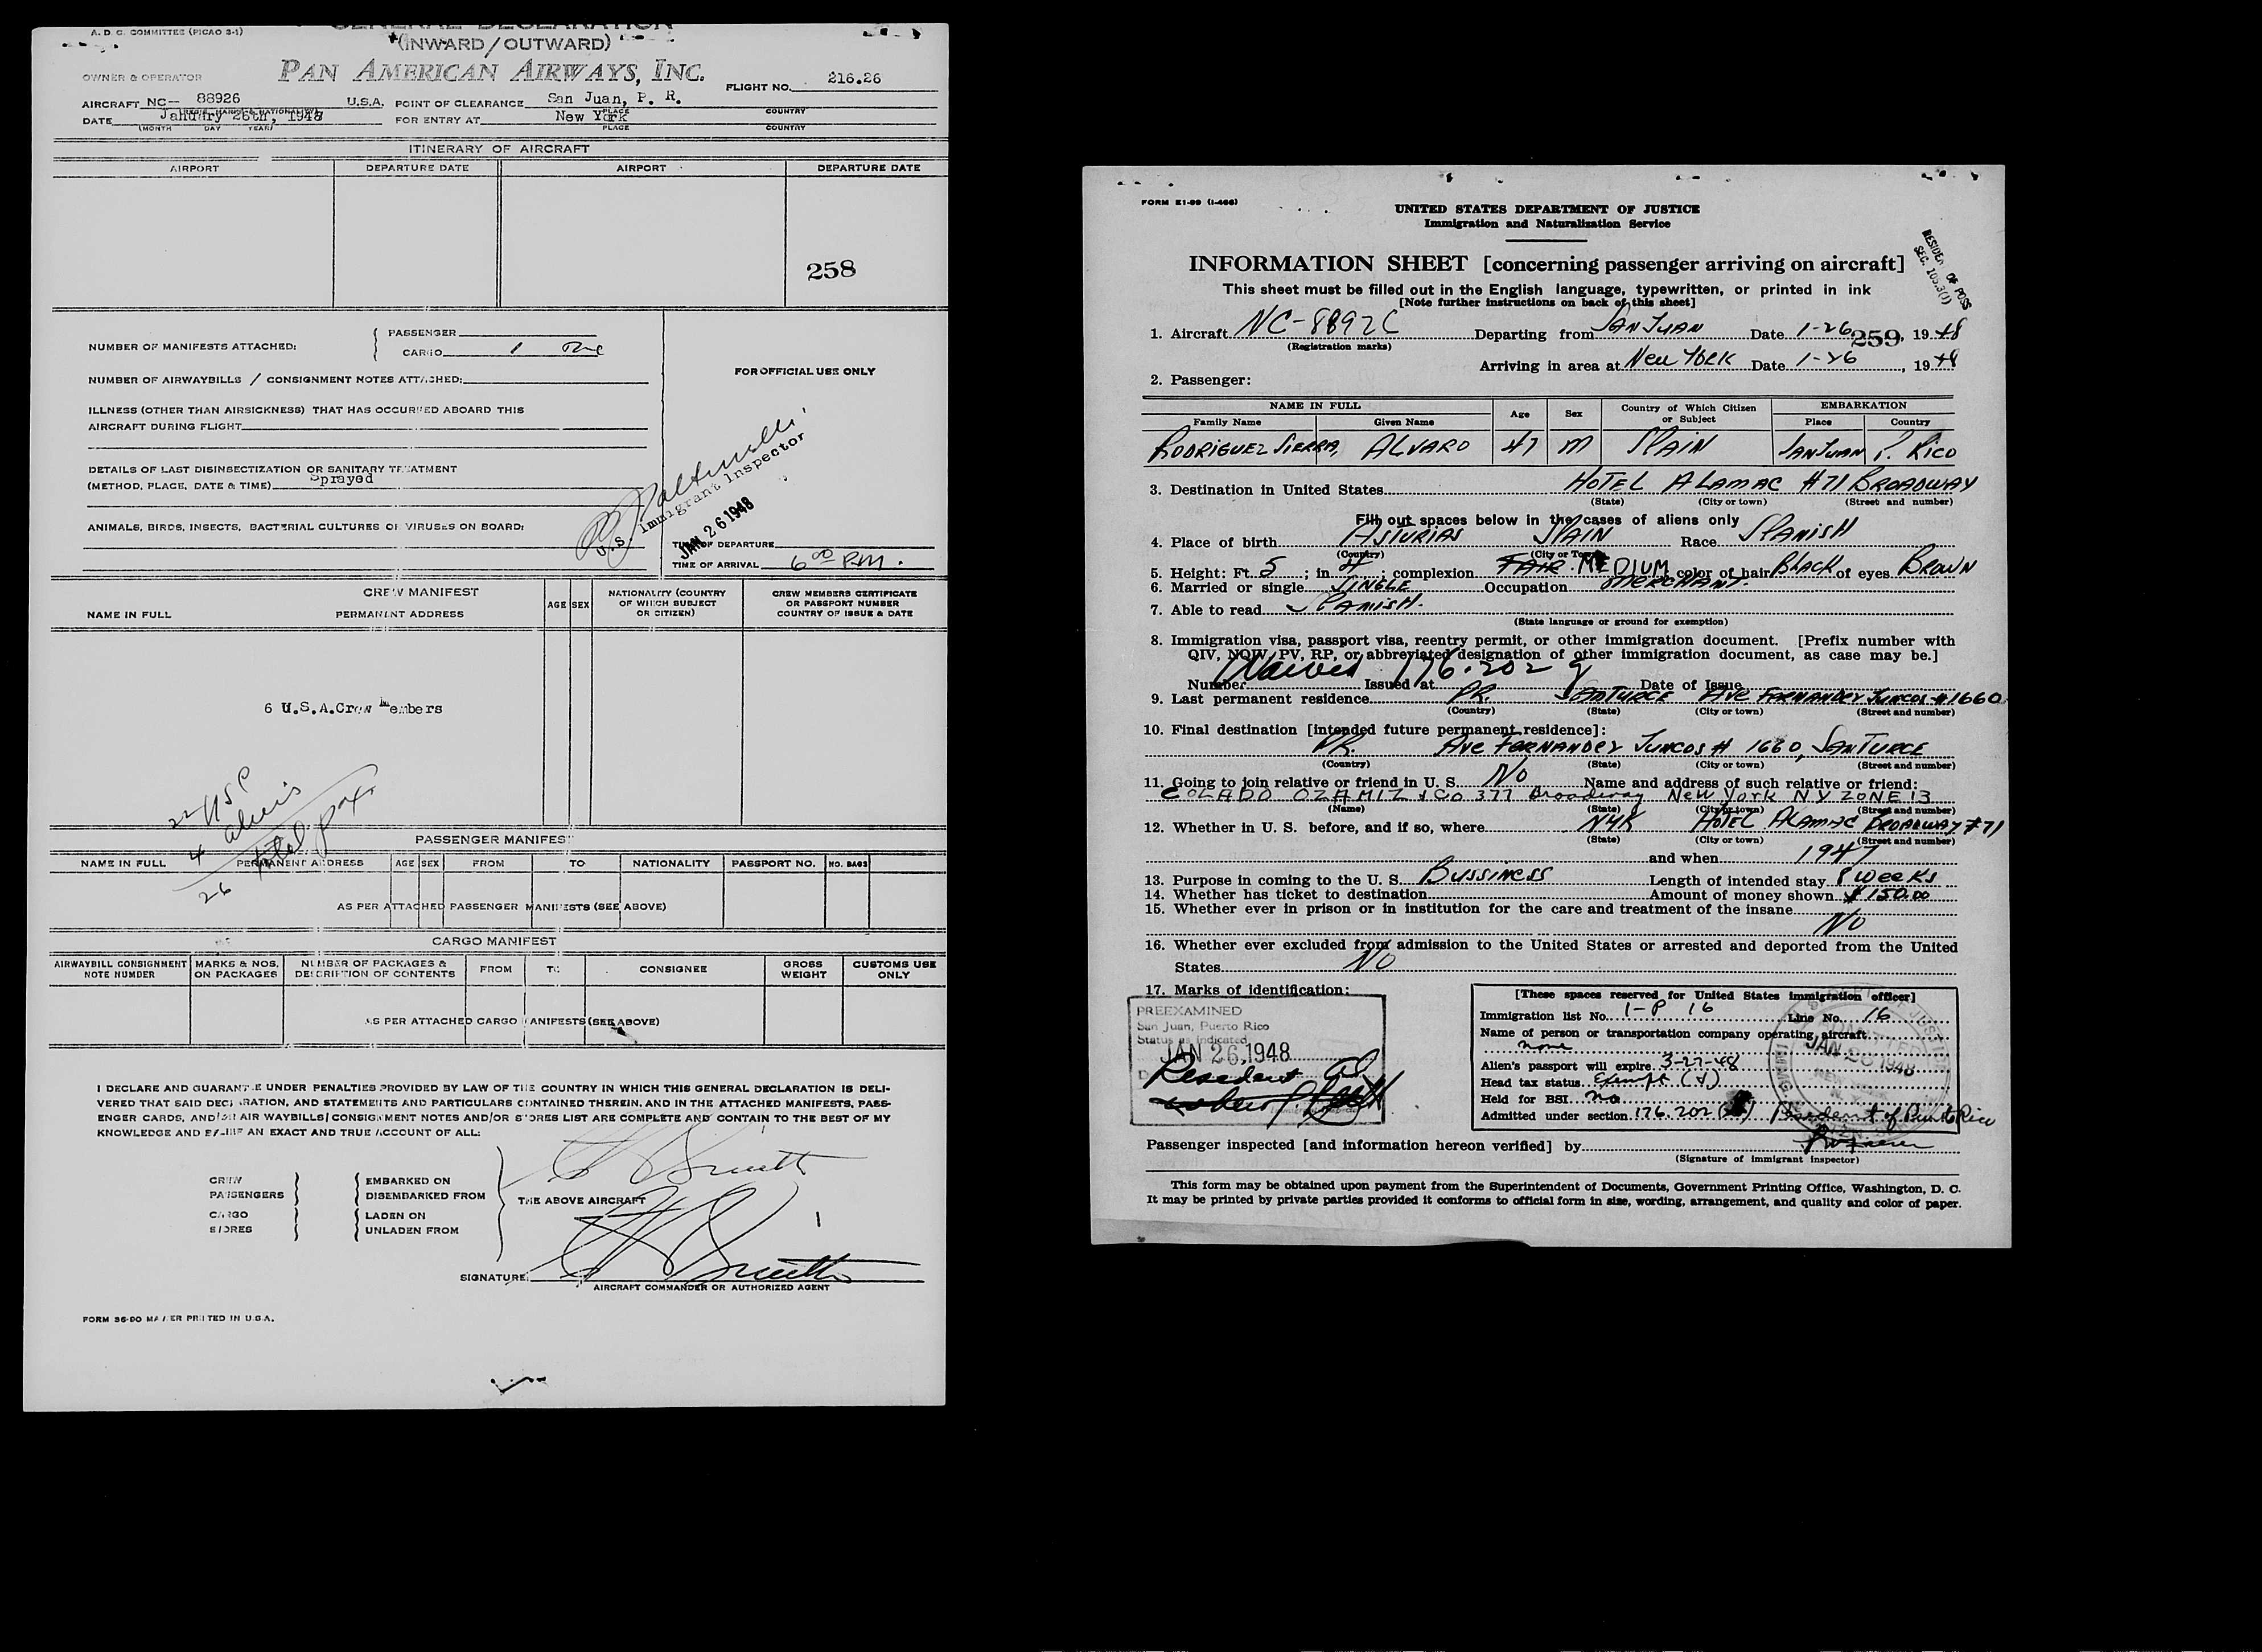 A. D. C. COMMITTEE (PICAO 3-1)
GENERAL DECLARATION
(INWARD / OUTWARD)
OWNER & OPERATOR
PAN AMERICAN AIRWAYS, INC.
FLIGHT NO. 216.26
AIRCRAFT NC- 88926 U.S.A. POINT OF CLEARANCE San Juan, P. R.
PLACE COUNTRY
DATE January 26th, 1948 FOR ENTRY AT New York
(MONTH DAY YEAR) PLACE COUNTRY
ITINERARY OF AIRCRAFT
AIRPORT DEPARTURE DATE AIRPORT DEPARTURE DATE
258
NUMBER OF MANIFESTS ATTACHED: PASSENGER
CARGO 1 One
NUMBER OF AIRWAYBILLS / CONSIGNMENT NOTES ATTACHED:
FOR OFFICIAL USE ONLY
ILLNESS (OTHER THAN AIRSICKNESS) THAT HAS OCCURRED ABOARD THIS
AIRCRAFT DURING FLIGHT
DETAILS OF LAST DISINSECTIZATION OR SANITARY TREATMENT
(METHOD, PLACE, DATE & TIME) Sprayed
ANIMALS, BIRDS, INSECTS, BACTERIAL CULTURES OR VIRUSES ON BOARD:
U.S. Immigrant Inspector
JAN 26 1948
TIME OF DEPARTURE
TIME OF ARRIVAL 6 00 P.M.
CREW MANIFEST
NAME IN FULL PERMANENT ADDRESS AGE SEX NATIONALITY (COUNTRY OF WHICH SUBJECT OR CITIZEN) CREW MEMBERS CERTIFICATE OR PASSPORT NUMBER COUNTRY OF ISSUE & DATE
6 U.S.A.Crew Members
22 USC
4 aliens
26 total pax
PASSENGER MANIFEST
NAME IN FULL PERMANENT ADDRESS AGE SEX FROM TO NATIONALITY PASSPORT NO. NO. BAGS
AS PER ATTACHED PASSENGER MANIFESTS (SEE ABOVE)
CARGO MANIFEST
AIRWAYBILL CONSIGNMENT NOTE NUMBER MARKS & NOS. ON PACKAGES NUMBER OF PACKAGES & DESCRIPTION OF CONTENTS FROM TO CONSIGNEE GROSS WEIGHT CUSTOMS USE ONLY
AS PER ATTACHED CARGO MANIFESTS (SEE ABOVE)
I DECLARE AND GUARANTEE UNDER PENALTIES PROVIDED BY LAW OF THE COUNTRY IN WHICH THIS GENERAL DECLARATION IS DELI-
VERED THAT SAID DECLARATION, AND STATEMENTS AND PARTICULARS CONTAINED THEREIN, AND IN THE ATTACHED MANIFESTS, PASS-
ENGER CARDS, AND/OR AIR WAYBILLS/CONSIGNMENT NOTES AND/OR STORES LIST ARE COMPLETE AND CONTAIN TO THE BEST OF MY
KNOWLEDGE AND BELIEF AN EXACT AND TRUE ACCOUNT OF ALL:
CREW EMBARKED ON
PASSENGERS DISEMBARKED FROM THE ABOVE AIRCRAFT
CARGO LADEN ON
STORES UNLADEN FROM
SIGNATURE:
AIRCRAFT COMMANDER OR AUTHORIZED AGENT
FORM 36-90 PRINTED IN U.S.A.
FORM E1-99 (I-466)
UNITED STATES DEPARTMENT OF JUSTICE
Immigration and Naturalization Service
INFORMATION SHEET [concerning passenger arriving on aircraft]
This sheet must be filled out in the English language, typewritten, or printed in ink
[Note further instructions on back of this sheet]
1. Aircraft NC-8892C Departing from SAN JUAN Date 1-26, 1948
259
(Registration marks)
Arriving in area at New YORK Date 1-26, 1948
2. Passenger:
NAME IN FULL Age Sex Country of Which Citizen or Subject EMBARKATION
Family Name Given Name Place Country
RODRIGUEZ SIERRA, ALVARO 47 M SPAIN SAN JUAN P. RICO
3. Destination in United States HOTEL ALAMAC #71 BROADWAY
(State) (City or town) (Street and number)
Fill out spaces below in the cases of aliens only
4. Place of birth ASTURIAS SPAIN Race SPANISH
(Country) (City or Town)
5. Height: Ft. 5; in 4; complexion FAIR MEDIUM color of hair Black of eyes BROWN
6. Married or single SINGLE Occupation MERCHANT.
7. Able to read SPANISH.
(State language or ground for exemption)
8. Immigration visa, passport visa, reentry permit, or other immigration document. [Prefix number with
QIV, NQIV, PV, RP, or abbreviated designation of other immigration document, as case may be.]
Waived 176.202
Number Issued at Date of Issue
9. Last permanent residence P.R. SANTURCE AVE FERNANDEZ JUNCOS #1660
(Country) (State) (City or town) (Street and number)
10. Final destination [intended future permanent residence]:
P.R. AVE FERNANDEZ JUNCOS # 1660, SANTURCE
(Country) (State) (City or town) (Street and number)
11. Going to join relative or friend in U. S. NO Name and address of such relative or friend:
COLADO OZAMIZ & Co 377 Broadway New York NY ZONE 13
(Name) (State) (City or town) (Street and number)
12. Whether in U. S. before, and if so, where NYK HOTEL ALAMAC BROADWAY #71
(State) (City or town) (Street and number)
and when 1947
13. Purpose in coming to the U. S. BUSSINESS Length of intended stay 8 weeks
14. Whether has ticket to destination Amount of money shown $150.00
15. Whether ever in prison or in institution for the care and treatment of the insane
NO
16. Whether ever excluded from admission to the United States or arrested and deported from the United
States NO
17. Marks of identification:
PREEXAMINED
San Juan, Puerto Rico
Status as Indicated
JAN 26, 1948
Resident
[These spaces reserved for United States immigration officer]
Immigration list No. 1-P 16 Line No. 16
Name of person or transportation company operating aircraft
none
Alien's passport will expire 3-27-48
Head tax status Exempt
Held for BSI no
Admitted under section 176.202 Resident of Puerto Rico
Passenger inspected [and information hereon verified] by
(Signature of immigrant inspector)
This form may be obtained upon payment from the Superintendent of Documents, Government Printing Office, Washington, D. C.
It may be printed by private parties provided it conforms to official form in size, wording, arrangement, and quality and color of paper.